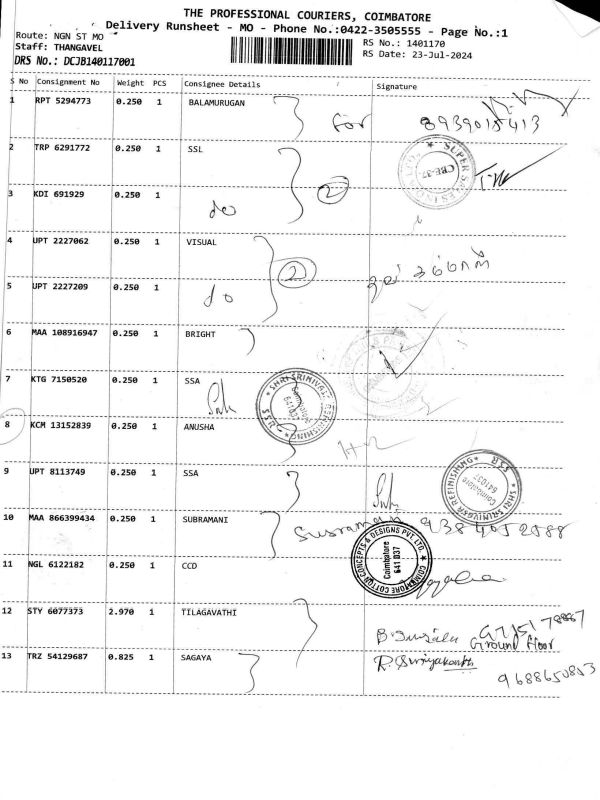 THE PROFESSIONAL COURIERS, COIMBATORE
Delivery Runsheet - MO - Phone No.:0422-3505555 - Page No.:1
Route: NGN ST MO
Staff: THANGAVEL
DRS No.: DCJB140117001
RS No.: 1401170
RS Date: 23-Jul-2024
S No Consignment No Weight PCS Consignee Details Signature
1 RPT 5294773 0.250 1 BALAMURUGAN for 8939015413
2 TRP 6291772 0.250 1 SSL
SUPER CBE-37
3 KDI 691929 0.250 1 do 2
4 UPT 2227062 0.250 1 VISUAL 2
5 UPT 2227209 0.250 1 do
6 MAA 108916947 0.250 1 BRIGHT
7 KTG 7150520 0.250 1 SSA
SHRI SRINIVASR REFINISHING SSR Coimbatore 641037
8 KCM 13152839 0.250 1 ANUSHA
9 UPT 8113749 0.250 1 SSA
SHRI SRINIVASR REFINISHING SSR Coimbatore 641037
10 MAA 866399434 0.250 1 SUBRAMANI
11 NGL 6122182 0.250 1 CCD
COIMBATORE COTTON CONCEPTS & DESIGNS PVT LTD. Coimbatore 641 037
12 STY 6077373 2.970 1 TILAGAVATHI
Ground floor
13 TRZ 54129687 0.825 1 SAGAYA R. Suriyakanth
9688650853